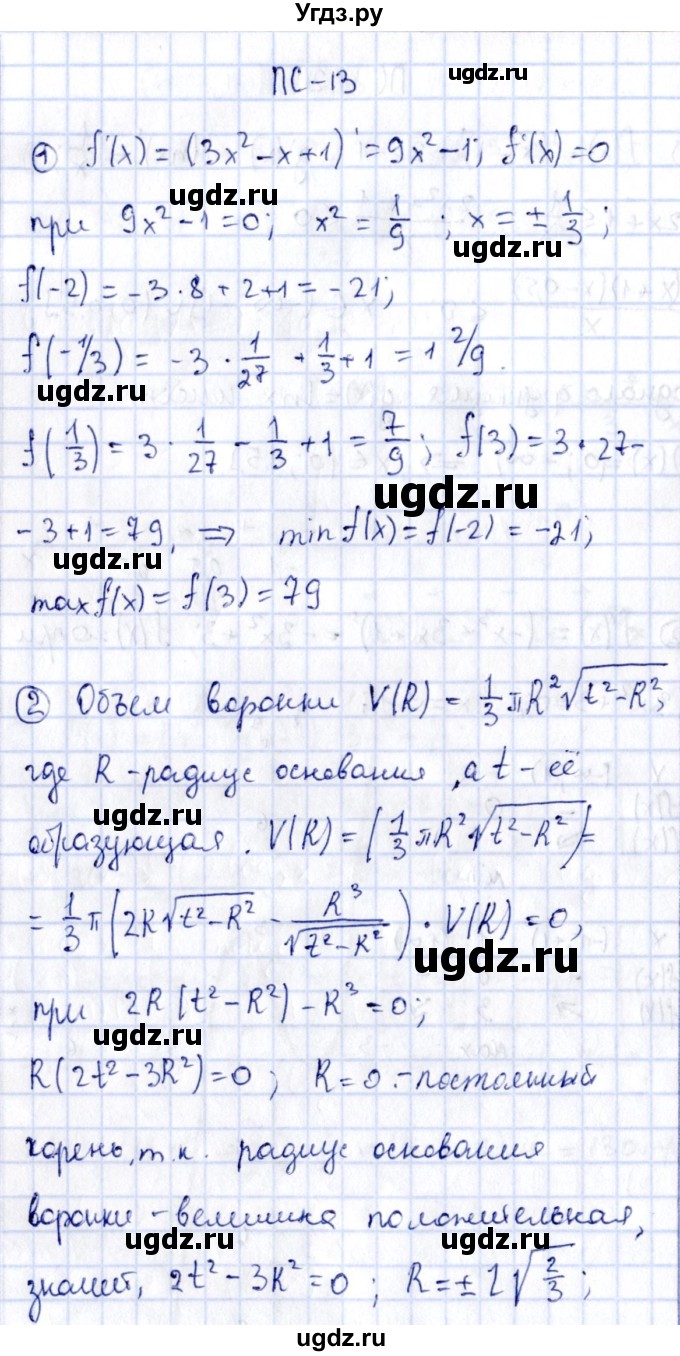 Угдз.ру
ПС-13
ugdz.ru
① f'(x) = (3x² - x + 1)' = 9x² - 1; f'(x) = 0
ugdz.ru
при 9x² - 1 = 0; x² = 1/9; x = ± 1/3;
f(-2) = -3·8 + 2 + 1 = -21;
f(-1/3) = -3 · 1/27 + 1/3 + 1 = 1 2/9.
ugdz.ru
f(1/3) = 3 · 1/27 - 1/3 + 1 = 7/9; f(3) = 3 · 27 -
ugdz.ru
- 3 + 1 = 79, ⇒ min f(x) = f(-2) = -21;
ugdz.ru
max f(x) = f(3) = 79
② Объем воронки V(R) = 1/3 πR²√(t² - R²),
ugdz.ru
где R - радиус основания, а t - её
ugdz.ru
образующая. V(R) = (1/3 πR²√(t² - R²)) =
= 1/3 π(2R√(t² - R²) - R³/√(t² - R²)). V(R) = 0,
ugdz.ru
при 2R(t² - R²) - R³ = 0;
ugdz.ru
R(2t² - 3R²) = 0; R = 0 - постоянный
корень, т.к. радиус основания
воронки - величина положительная,
ugdz.ru
ugdz.ru
значит, 2t² - 3R² = 0; R = ± l√(2/3);
ugdz.ru